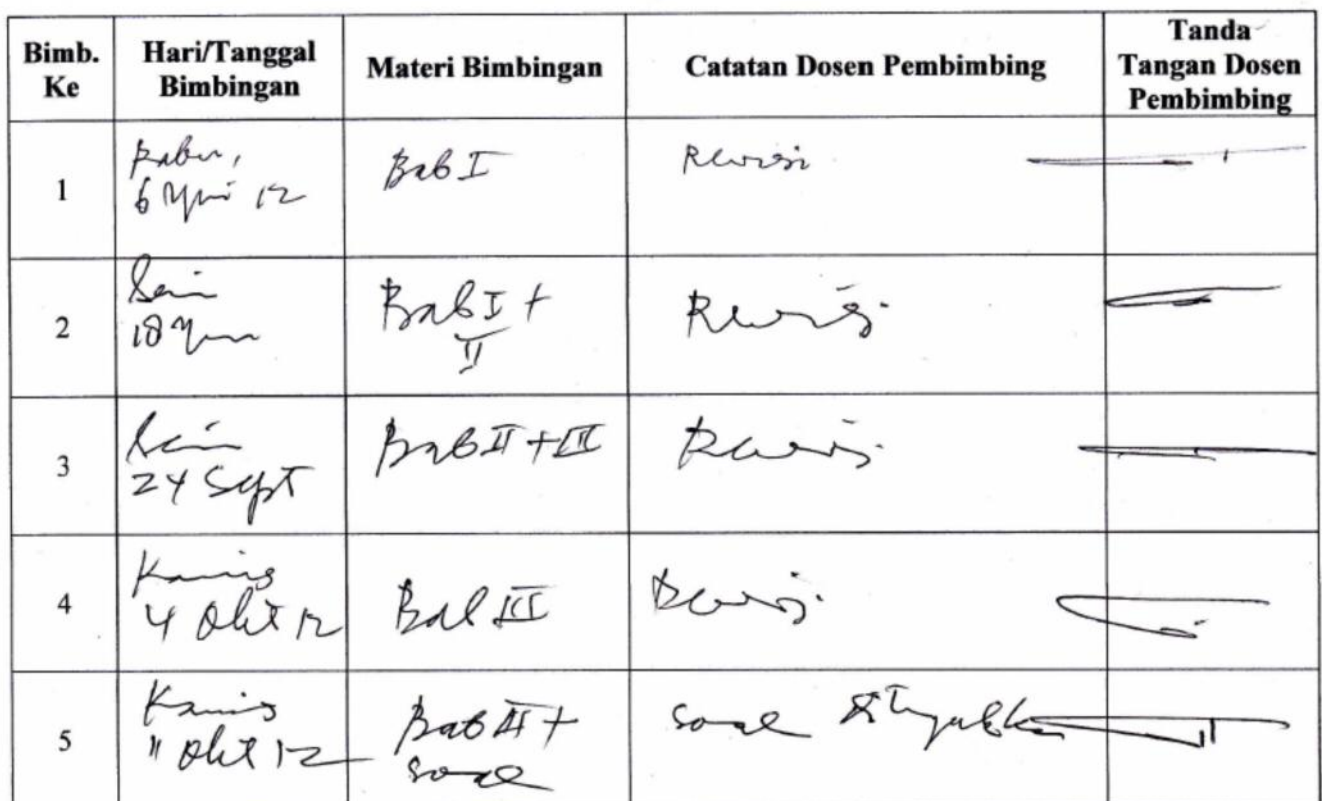 Bimb. Ke
Hari/Tanggal Bimbingan
Materi Bimbingan
Catatan Dosen Pembimbing
Tanda Tangan Dosen Pembimbing
1
Rabu,
6 Juni 12
Bab I
Revisi
2
Senin
18 Juni
Bab I +
II
Revisi
3
Senin
24 Sept
Bab II + III
Revisi
4
Kamis
4 Okt 12
Bab III
Revisi
5
Kamis
11 Okt 12
Bab III +
soal
soal